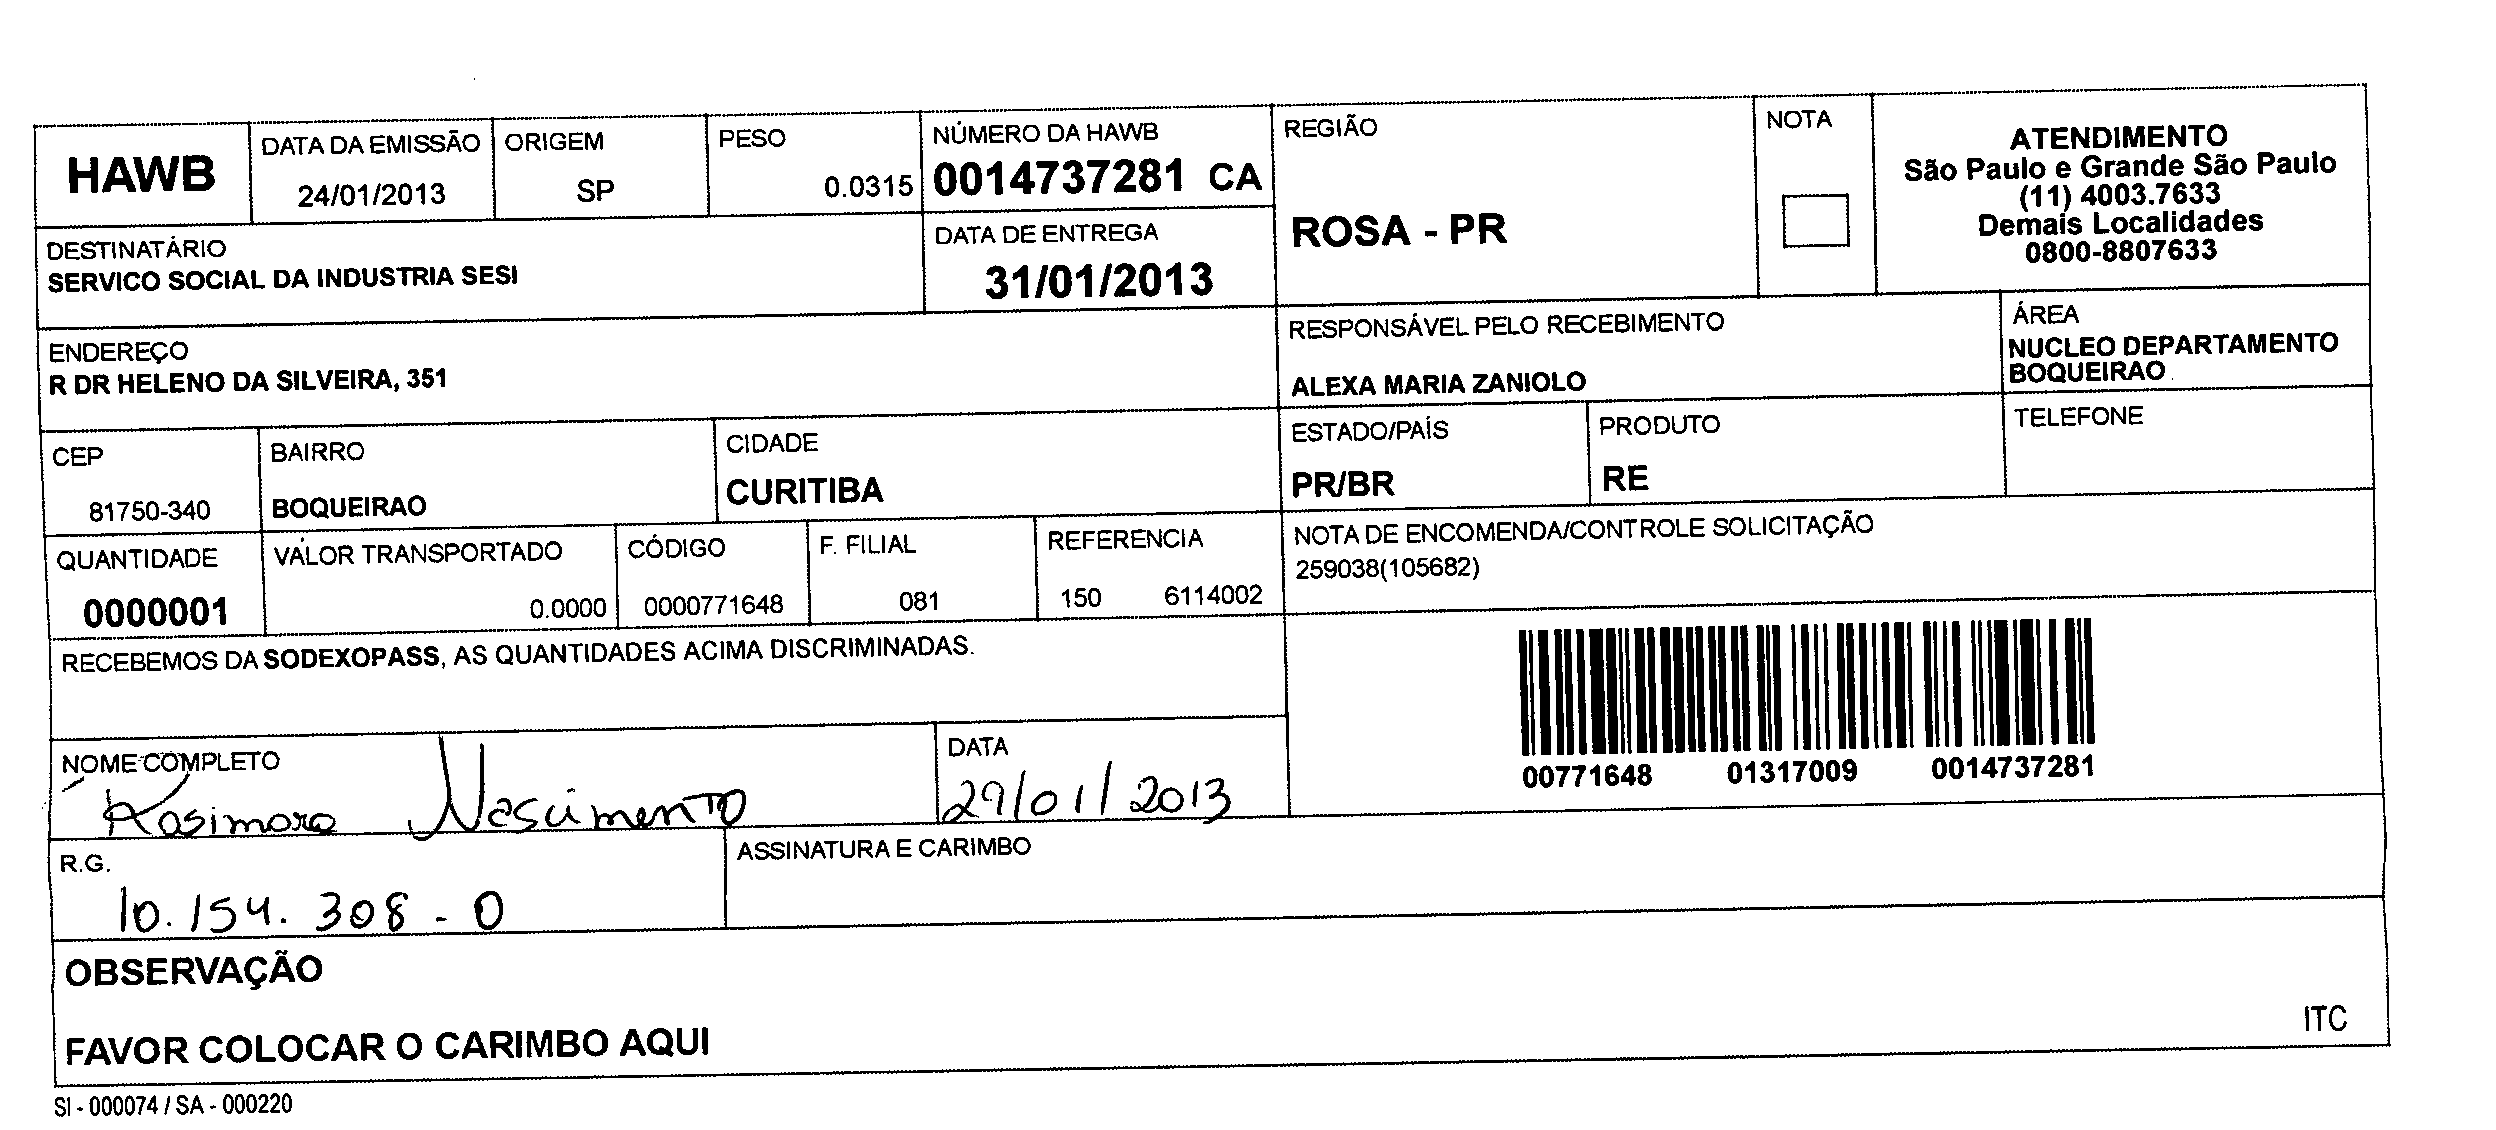 HAWB
DATA DA EMISSÃO
24/01/2013
ORIGEM
SP
PESO
0.0315
NÚMERO DA HAWB
0014737281 CA
REGIÃO
ROSA - PR
NOTA
ATENDIMENTO
São Paulo e Grande São Paulo
(11) 4003.7633
Demais Localidades
0800-8807633
DESTINATÁRIO
SERVICO SOCIAL DA INDUSTRIA SESI
DATA DE ENTREGA
31/01/2013
ENDEREÇO
R DR HELENO DA SILVEIRA, 351
RESPONSÁVEL PELO RECEBIMENTO
ALEXA MARIA ZANIOLO
ÁREA
NUCLEO DEPARTAMENTO
BOQUEIRAO
CEP
81750-340
BAIRRO
BOQUEIRAO
CIDADE
CURITIBA
ESTADO/PAÍS
PR/BR
PRODUTO
RE
TELEFONE
QUANTIDADE
0000001
VALOR TRANSPORTADO
0.0000
CÓDIGO
0000771648
F. FILIAL
081
REFERENCIA
150 6114002
NOTA DE ENCOMENDA/CONTROLE SOLICITAÇÃO
259038(105682)
RECEBEMOS DA SODEXOPASS, AS QUANTIDADES ACIMA DISCRIMINADAS.
00771648 01317009 0014737281
NOME COMPLETO
Rosimara Nascimento
DATA
29/01/2013
R.G.
10.154.308-0
ASSINATURA E CARIMBO
OBSERVAÇÃO
FAVOR COLOCAR O CARIMBO AQUI
ITC
SI - 000074 / SA - 000220